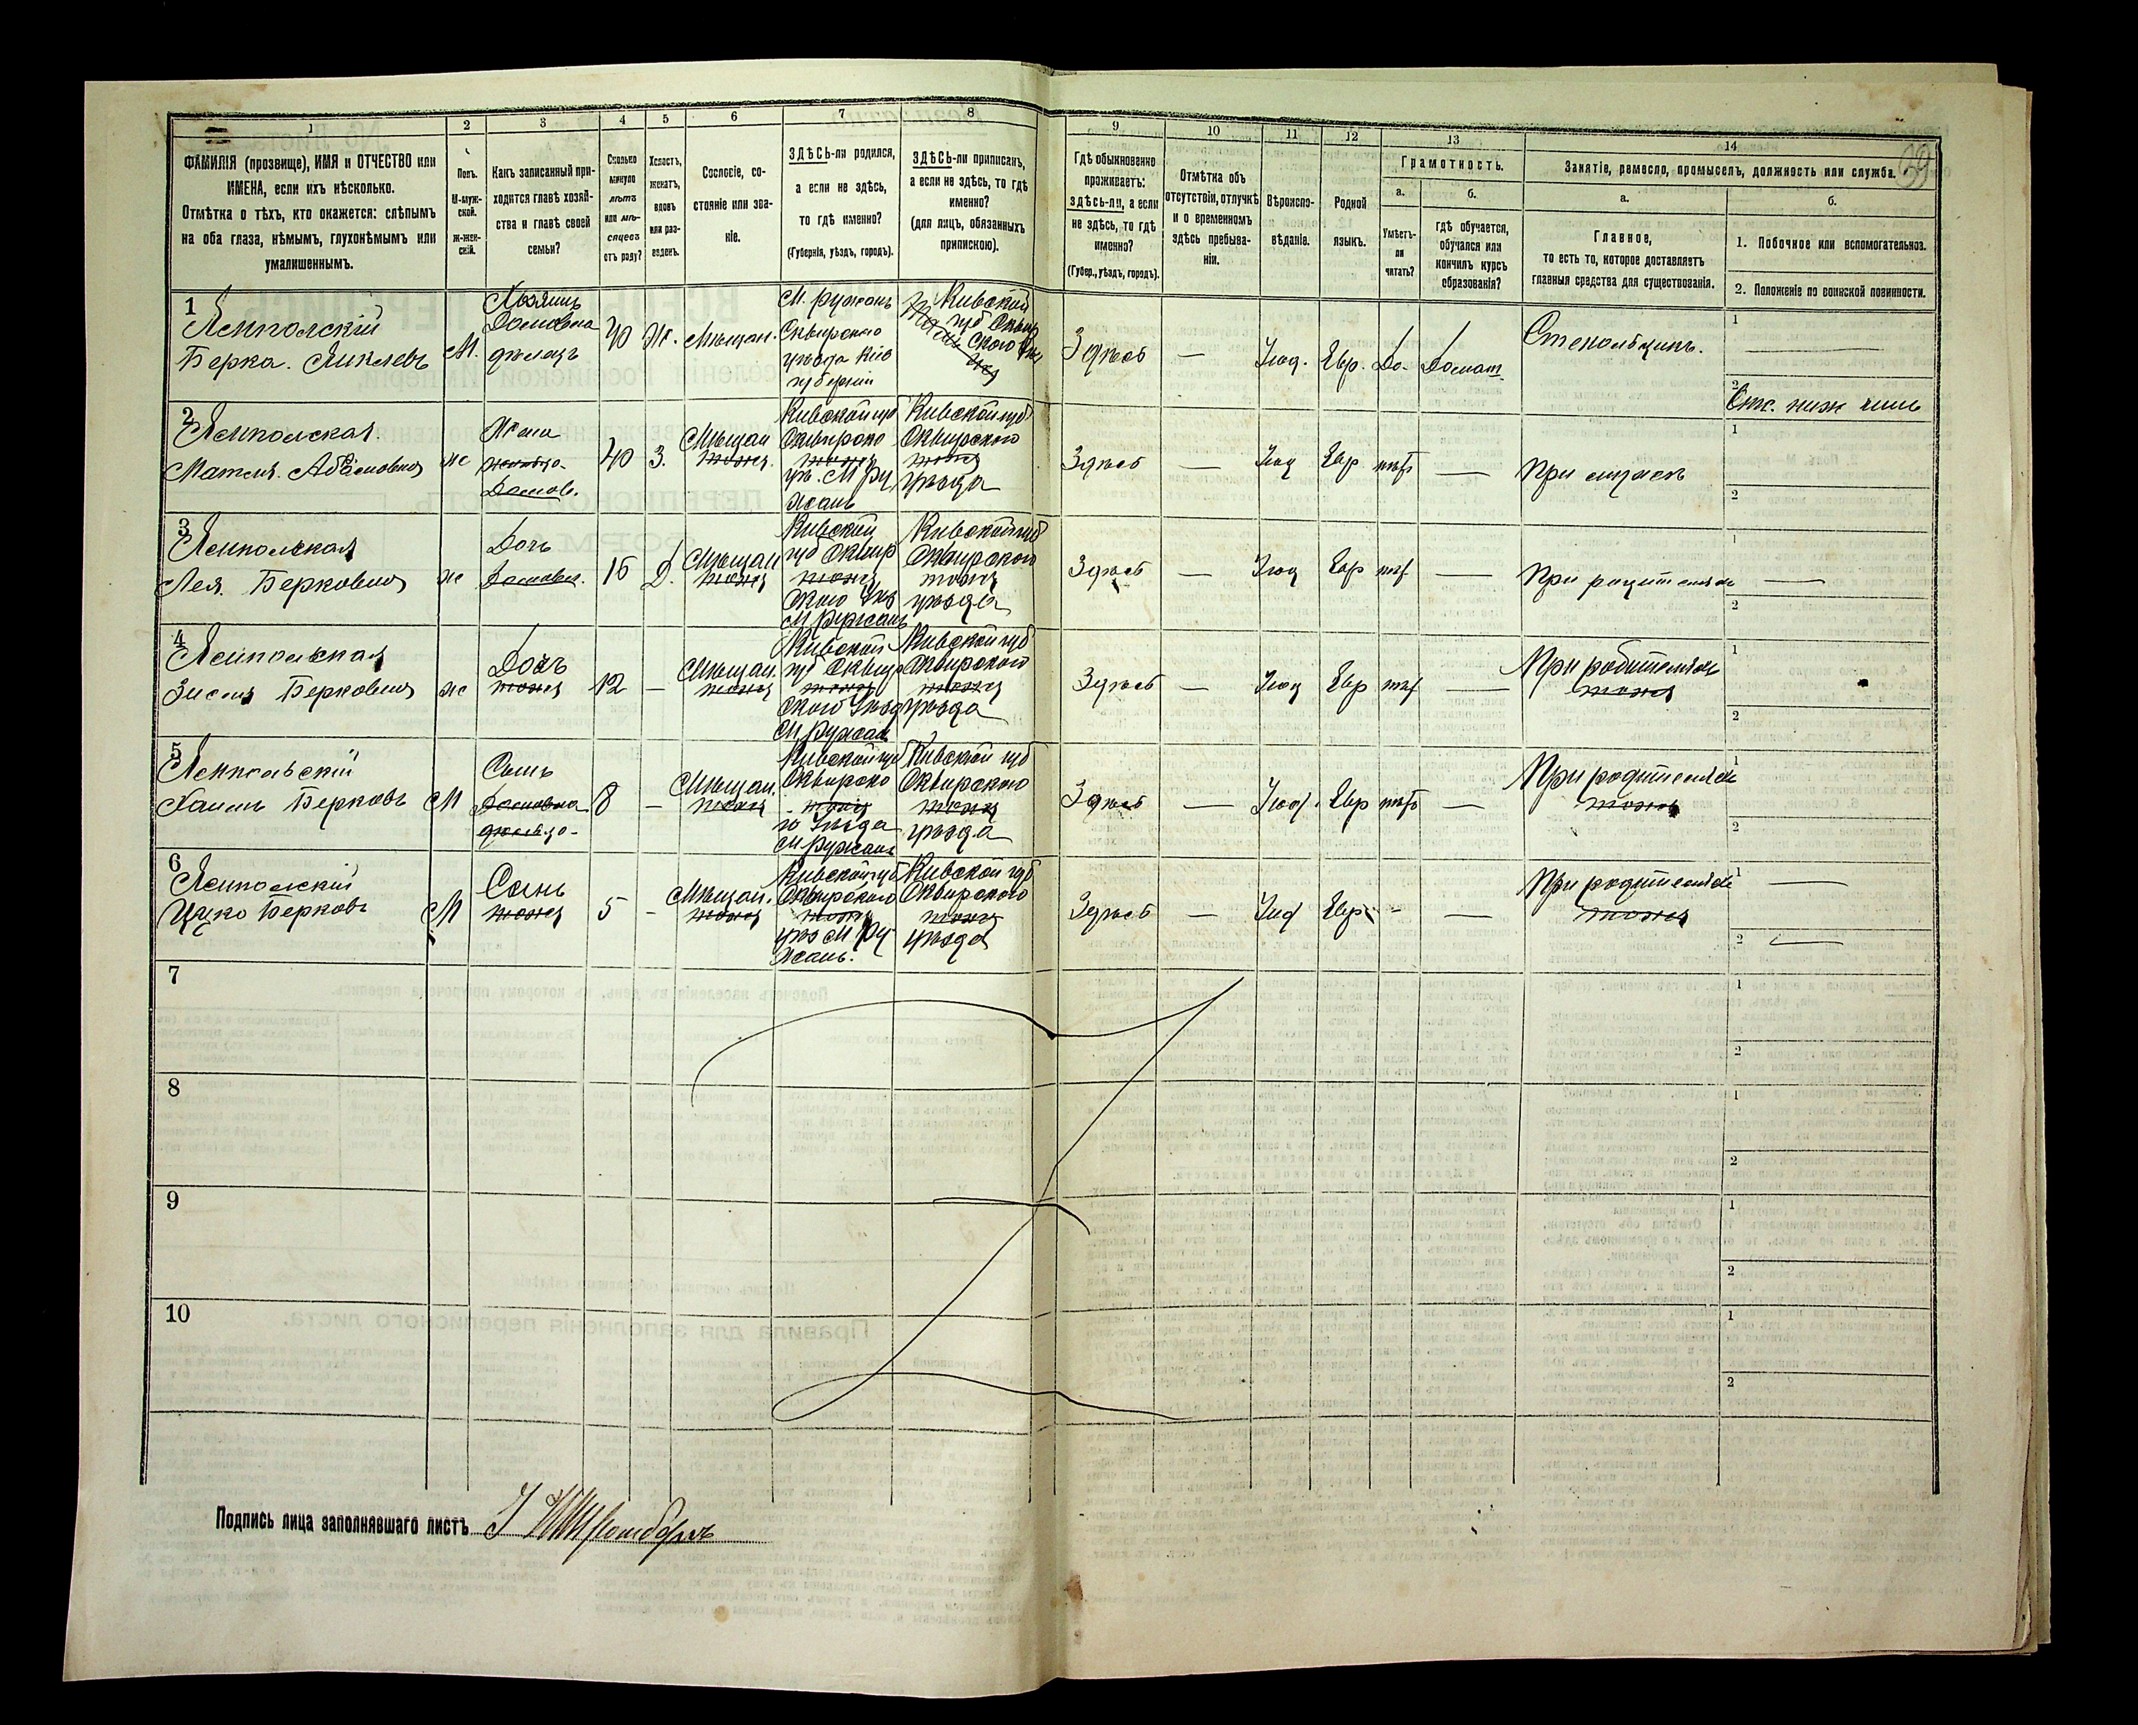 1 2 3 4 5 6 7 8 9 10 11 12 13 14
ФАМИЛІЯ (прозвище), ИМЯ и ОТЧЕСТВО или
ИМЕНА, если ихъ нѣсколько.
Отмѣтка о тѣхъ, кто окажется: слѣпымъ
на оба глаза, нѣмымъ, глухонѣмымъ или
умалишеннымъ.
Полъ.
М-муж-
ской.
Ж-жен-
скій.
Какъ записанный при-
ходится главѣ хозяй-
ства и главѣ своей
семьи?
Сколько
минуло
лѣтъ
или мѣ-
сяцевъ
отъ роду?
Холостъ,
женатъ,
вдовъ
или раз-
веденъ.
Сословіе, со-
стояніе или зва-
ніе.
ЗДѢСЬ-ли родился,
а если не здѣсь,
то гдѣ именно?
(Губернія, уѣздъ, городъ).
ЗДѢСЬ-ли приписанъ,
а если не здѣсь, то гдѣ
именно?
(для лицъ, обязанныхъ
припискою).
Гдѣ обыкновенно
проживаетъ:
здѣсь-ли, а если
не здѣсь, то гдѣ
именно?
(Губер., уѣздъ, городъ).
Отмѣтка объ
отсутствіи, отлучкѣ
и о временномъ
здѣсь пребыва-
ніи.
Вѣроиспо-
вѣданіе.
Родной
языкъ.
Грамотность.
а.
Умѣетъ-
ли
читать?
б.
гдѣ обучается,
обучался или
кончилъ курсъ
образованія?
Занятіе, ремесло, промыселъ, должность или служба.
а.
Главное,
то есть то, которое доставляетъ
главныя средства для существованія.
б.
1. Побочное или вспомогательное.
2. Положеніе по воинской повинности.
1
Ямпольскій
Берка
М.
Хозяинъ
40
Ж.
Мѣщан.
М. Ружинъ
Сквирского
уѣзда Кіев
губерніи
Кивской
губ Сквир
Здѣсь
—
Іюд.
Евр.
Да.
Домаш.
Стекольщикъ.
1
2
Отс. ниж чинъ
2
Ямпольская.
ж
Жена
40
З.
Мѣщан
тоже
Кивской губ
Сквирско
Кивской губ
Сквирского
тоже
уѣзда
Здѣсь
—
Іюд
Евр
нѣтъ
—
При мужѣ
1
2
3
Ямпольская
Лея. Берковна
ж
Дочь
16
Д.
Мѣщан
тоже
Кивской
губ Сквир
тоже
ского
Кивской губ
Сквирского
тоже
уѣзда
Здѣсь
—
Іюд
Евр
нѣт
—
При родителяхъ
1
2
4
Ямпольская
Зисля Берковна
ж
Дочь
тоже
12
—
Мѣщан.
тоже
Кивской
губ Сквир
тоже
ского уѣзд
Кивской губ
Сквирского
тоже
уѣзда
Здѣсь
—
Іюд
Евр
нѣт
—
При родителяхъ
тоже
1
2
5
Ямпольскій
Хаимъ Берковъ
М
Сынъ
8
—
Мѣщан.
тоже
Кивской губ
Сквирско
тоже
го уѣзда
Кивской губ
Сквирского
тоже
уѣзда
Здѣсь
—
Іюд.
Евр
нѣтъ
—
При родителяхъ
тоже
1
2
6
Ямпольскій
Берковъ
М
Сынъ
тоже
5
-
Мѣщан.
тоже
Кивской губ
Сквирского
тоже
Кивской губ
Сквирского
тоже
уѣзда
Здѣсь
—
Іюд
Евр.
-
—
При родителяхъ
тоже
1
2
7
1
2
8
1
2
9
1
2
10
1
2
Подпись лица заполнявшаго листъ